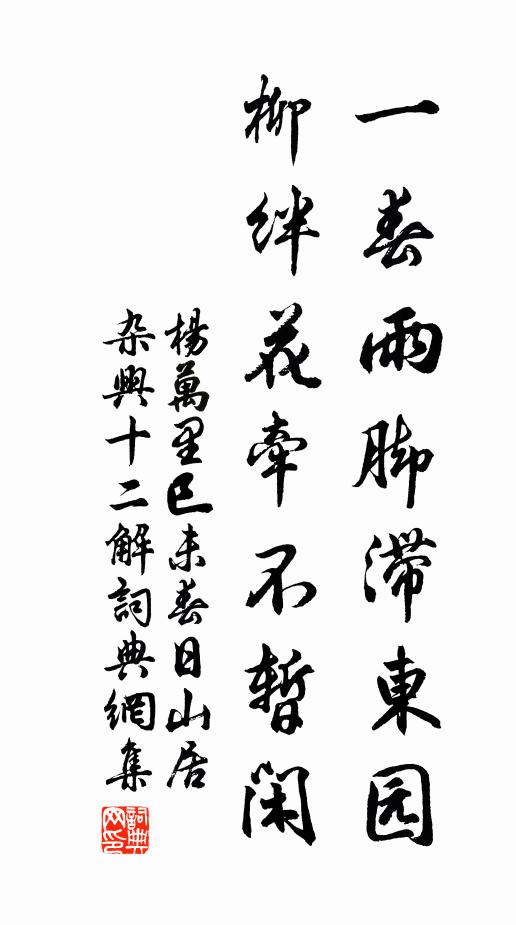 一春雨脚滞東园
柳絆花牵不暫闲
楊萬里巳未春日山居
杂興十二解詞典網集
詞典
网印